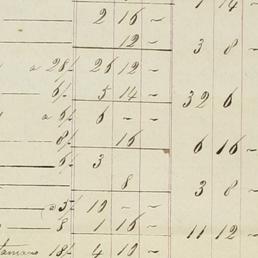 1 14 ~
2 16 ~
12 ~ 3 8 ~
a 28/ 26 12 ~
6/ 5 14 ~ 32 6
a 6/ 6 ~ ~
8/ 16 6 16 ~
6/ 3
8 3 8 ~
a 5/ 10 ~ ~
8 1 16 ~ 11 12 ~
18/ 4 10 ~